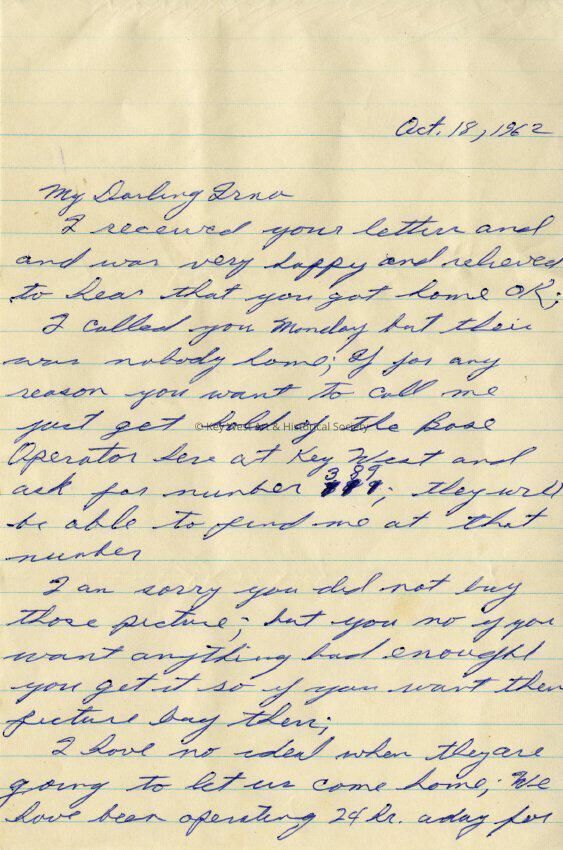 Oct. 18, 1962
My Darling Erna
I received your letter and
and was very happy and relieved
to hear that you got home OK;
I called you Monday but their
was nobody home; If for any
reason you want to call me
just get hold of the Base
© Key West Art & Historical Society
Operator here at Key West and
ask for number 389; they will
be able to find me at that
number
I am sorry you did not buy
those picture; but you no if you
want anything bad enought
you get it so if you want them
picture buy them;
I have no ideal when they are
going to let us come home; We
have been operating 24 hr. a day for